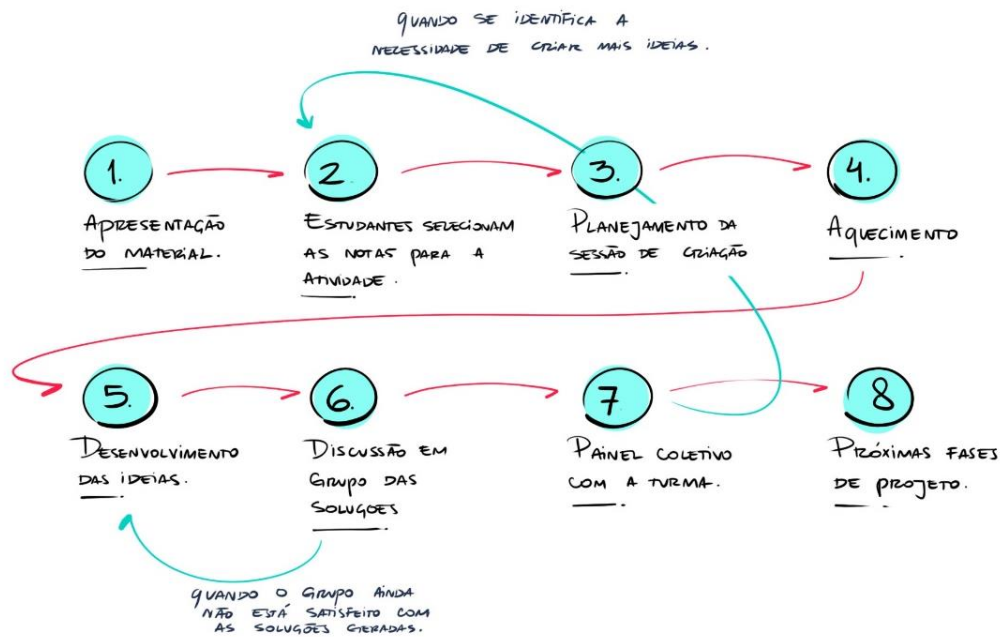 QUANDO SE IDENTIFICA A
NECESSIDADE DE CRIAR MAIS IDEIAS.
1.
APRESENTAÇÃO
DO MATERIAL.
2.
ESTUDANTES SELECIONAM
AS NOTAS PARA A
ATIVIDADE.
3.
PLANEJAMENTO DA
SESSÃO DE CRIAÇÃO
4.
AQUECIMENTO
5.
DESENVOLVIMENTO
DAS IDEIAS.
6.
DISCUSSÃO EM
GRUPO DAS
SOLUÇOES
7
PAINEL COLETIVO
COM A TURMA.
8
PRÓXIMAS FASES
DE PROJETO.
QUANDO O GRUPO AINDA
NÃO ESTÁ SATISFEITO COM
AS SOLUÇÕES GERADAS.